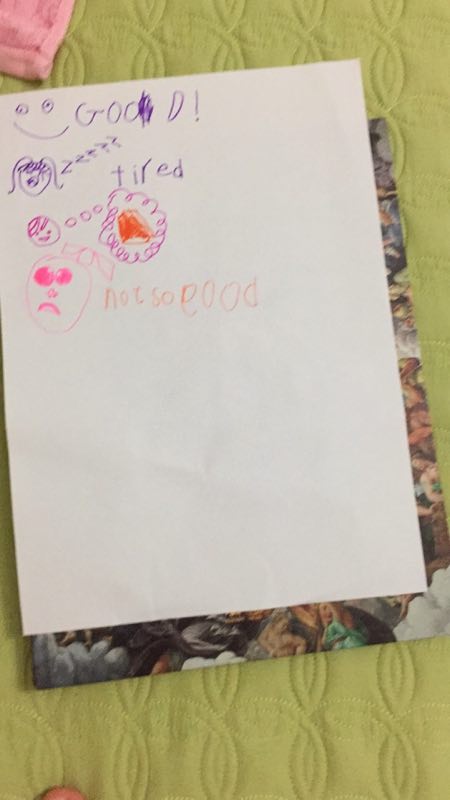 GOOD!
zzzzz
tired
not so good